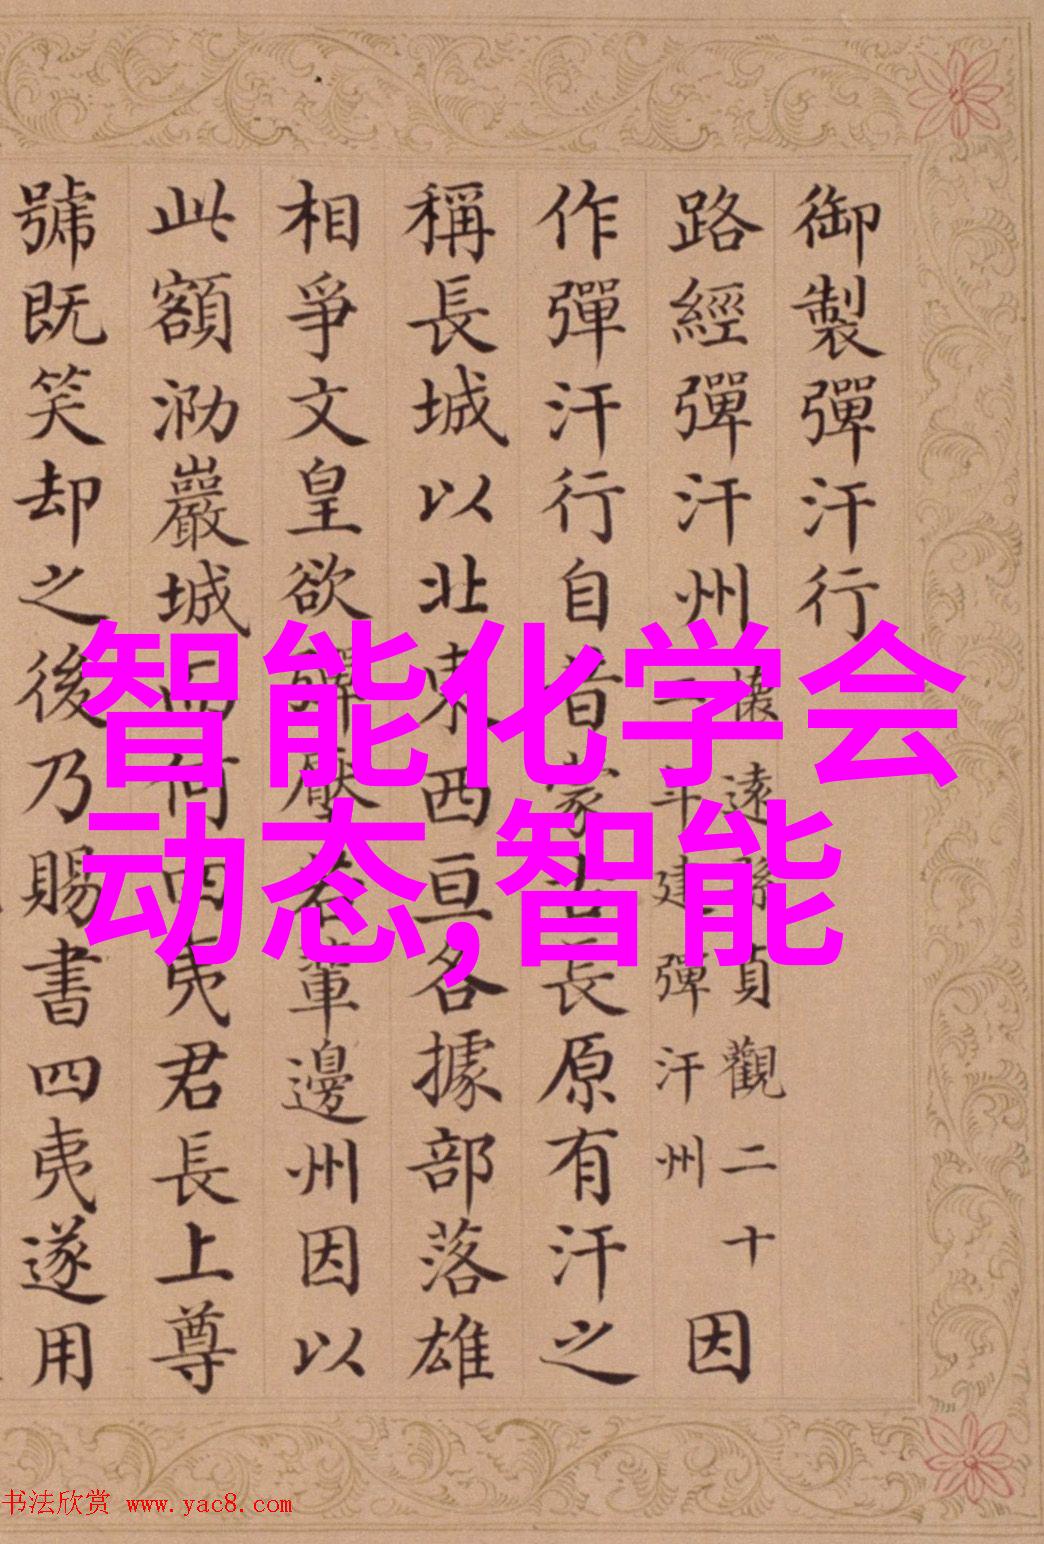 御製彈汗行
路經彈汗州懷遠縣貞觀二十二年建彈汗州因
作彈汗行自昔蒙古長原有汗之
稱長城以北東西亘各據部落雄
相爭文皇欲辭壓若輩邊州因以
此額泐巖城而何四夷君長上尊
號既笑却之後乃賜書四夷遂用
智能化学会
动态,智能
书法欣赏 www.yac8.com